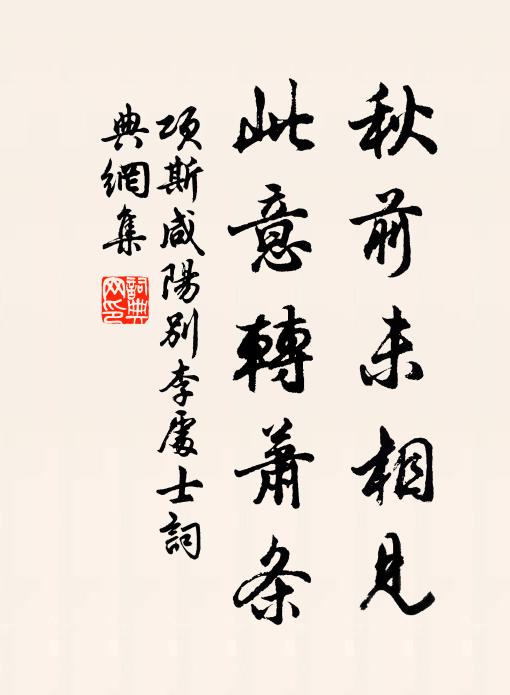 秋前未相見
此意轉蕭条
項斯咸陽別李處士詞
典網集
詞典
网印